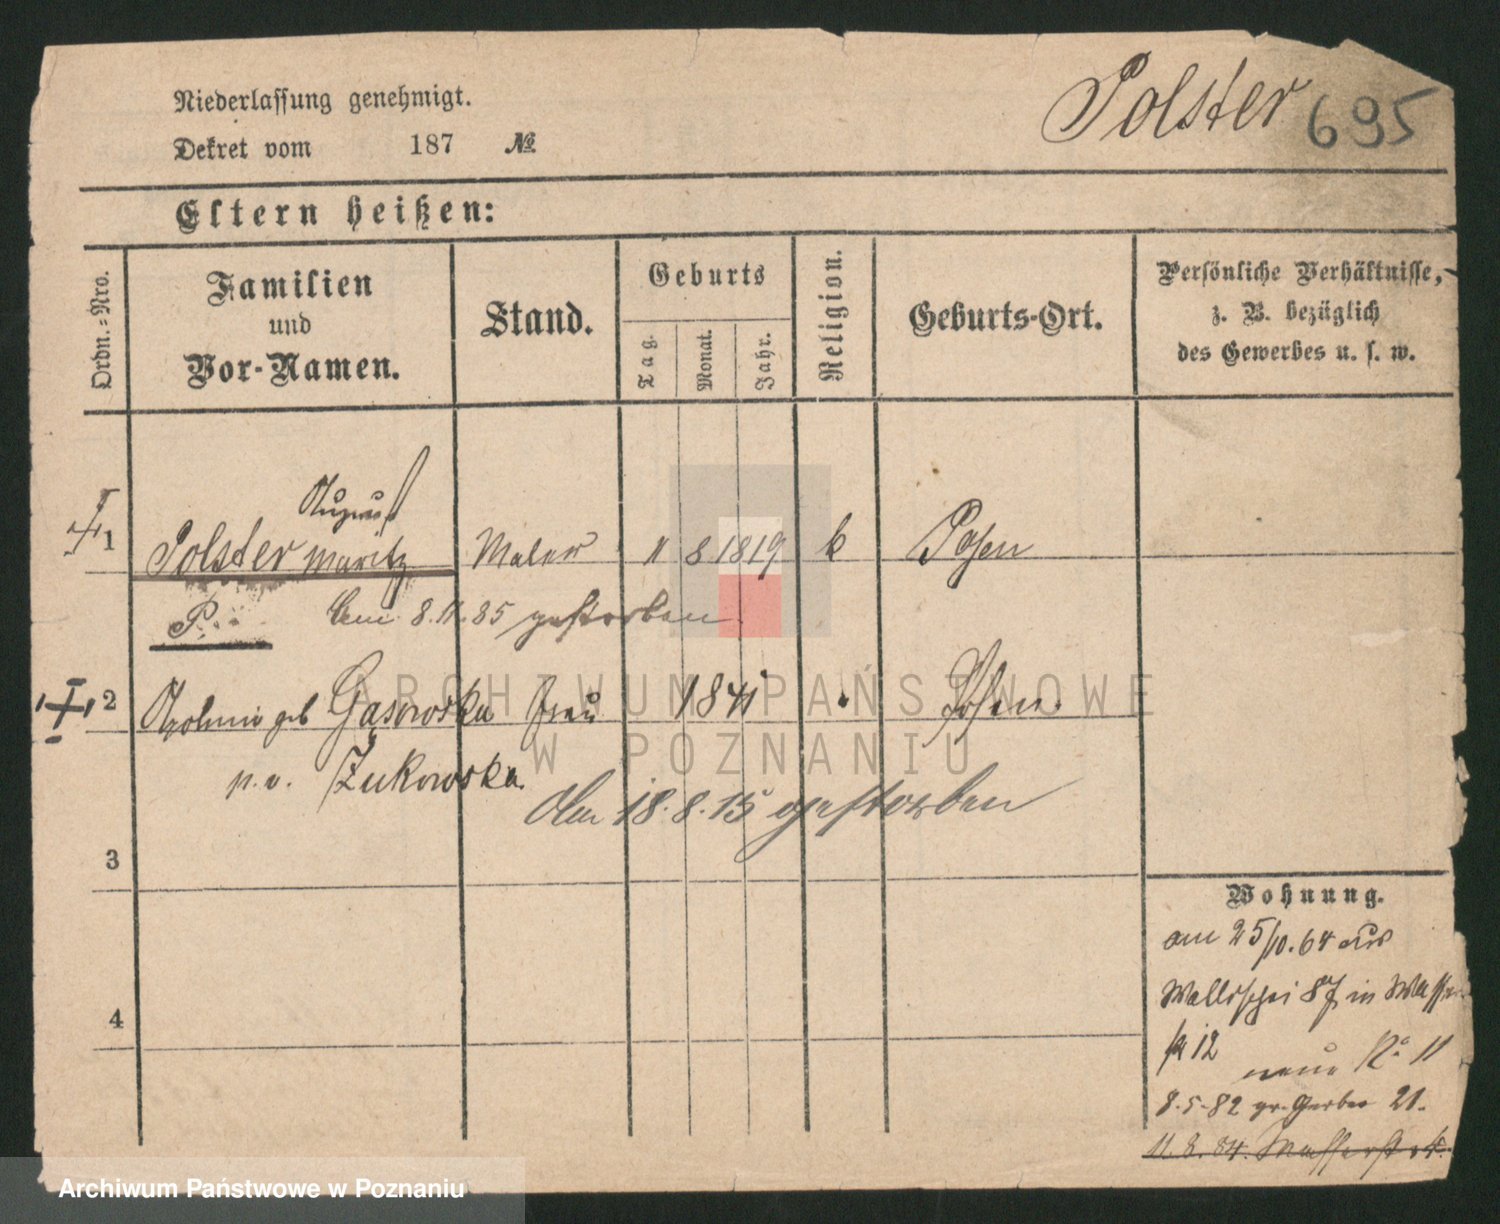 Polster 695
Niederlassung genehmigt.
Dekret vom 187 №
Eltern heißen:
Ordn.-Nro.
Familien
und
Vor-Namen.
Stand.
Geburts
Tag.
Monat.
Jahr.
Religion.
Geburts-Ort.
Persönliche Verhältnisse,
z. B. bezüglich
des Gewerbes u. s. w.
August
1 Polster Moritz Maler 11 8 1819 k Posen
P. Am 8.11.85 gestorben
2 geb Gąsowska Frau 1841 Posen.
p. v. Żukowska
Am 18.8.15 gestorben
3
4
Wohnung.
am 25/10.64 aus
Wallischei 87 in Wasser
str 12 neue No 11
8.5.82 gr. Gerber 21.
11.8.84. Wasserstr 4.
ARCHIWUM PAŃSTWOWE
W POZNANIU
Archiwum Państwowe w Poznaniu